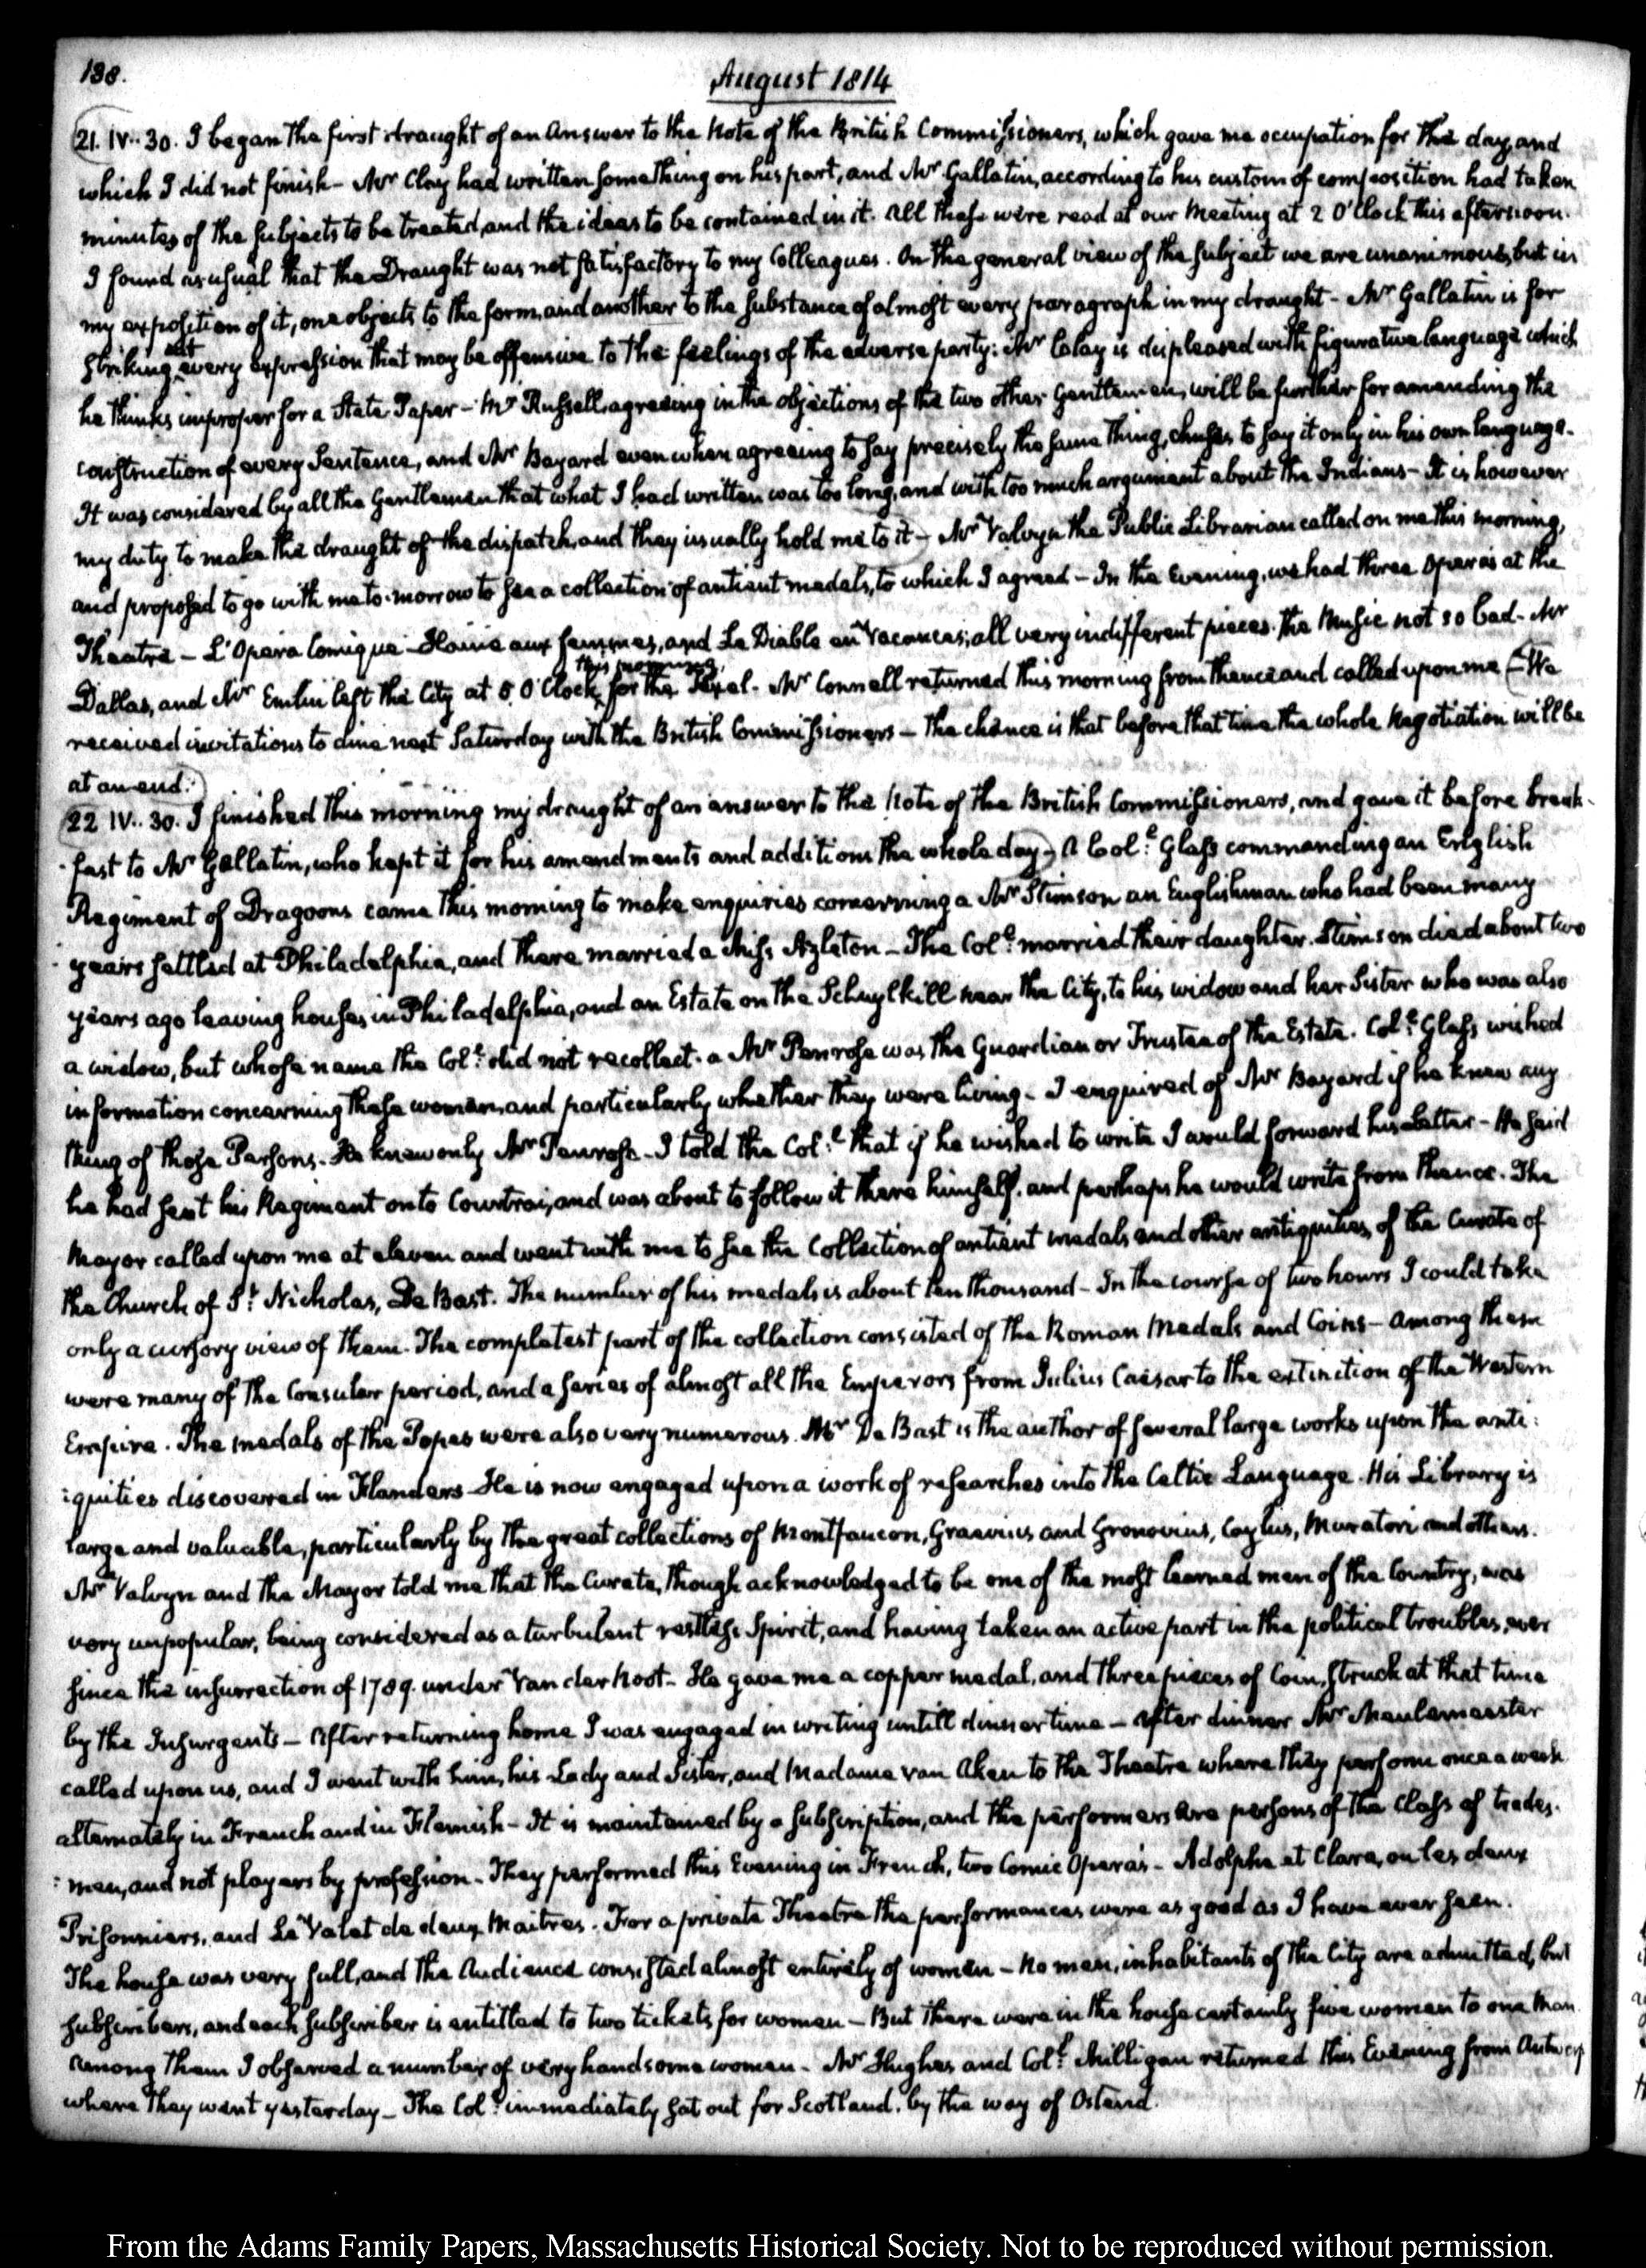 138.
August 1814
21. IV.. 30. I began the first draught of an Answer to the Note of the British Commissioners, which gave me occupation for the day, and
which I did not finish – Mr Clay had written something on his part, and Mr Gallatin, according to his custom of composition had taken
minutes of the subjects to be treated, and the ideas to be contained in it. All these were read at our Meeting at 2 O'Clock this afternoon.
I found as usual that the Draught was not satisfactory to my Colleagues. On the general view of the subject we are unanimous, but in
my exposition of it, one objects to the form, and another to the substance of almost every paragraph in my draught – Mr Gallatin is for
striking out every expression that may be offensive to the feelings of the adverse party: Mr Calay is displeased with figurative language which
he thinks improper for a State Paper – Mr Russell, agreeing in the objections of the two other Gentlemen, will be further for amending the
construction of every Sentence, and Mr Bayard even when agreeing to say precisely the same thing, chuses to say it only in his own language.
It was considered by all the Gentlemen that what I had written was too long, and with too much argument about the Indians – It is however
my duty to make the draught of the dispatch, and they usually hold me to it – Mr Valvyn the Public Librarian called on me this morning,
and proposed to go with me to-morrow to see a collection of antient medals, to which I agreed – In the Evening, we had three Operas at the
Theatre – L'Opera Comique – Haine aux femmes, and Le Diable en Vacances; all very indifferent pieces. The Music not so bad – Mr
Dallas, and Mr Emlin left the City at 5. O'Clock, this morning, for the Texel. Mr Connell returned this morning from thence and called upon me – We
received invitations to dine next Saturday with the British Commissioners – The chance is that before that time the whole Negotiation will be
at an end.
22 IV.. 30. I finished this morning my draught of an answer to the Note of the British Commissioners, and gave it before break-
-fast to Mr Gallatin, who kept it for his amendments and additions the whole day – A Col.l Glass commanding an English
Regiment of Dragoons came this morning to make enquiries concerning a Mr Stimson an Englishman who had been many
years settled at Philadelphia, and there married a Miss Azleton – The Col.l married their daughter. Stimson died about two
years ago leaving houses in Philadelphia, and an Estate on the Schuylkill near the City, to his widow and her Sister who was also
a widow, but whose name the Col.l did not recollect. a Mr Penrose was the Guardian or Trustee of the Estate. Col.l Glass wished
information concerning these women, and particularly whether they were living – I enquired of Mr Bayard if he knew any
thing of those Persons. He knew only Mr Penrose – I told the Col.l that if he wished to write I would forward his Letter – He said
he had sent his Regiment on to Courtrai, and was about to follow it there himself, and perhaps he would write from thence. The
Mayor called upon me at eleven and went with me to see the Collection of antient medals and other antiquities, of the Curate of
the Church of St Nicholas, De Bast. The number of his medals is about ten thousand – In the course of two hours I could take
only a cursory view of them. The completest part of the collection consisted of the Roman Medals and Coins – Among them
were many of the Consular period, and a series of almost all the Emperors from Julius Caesar to the extinction of the Western
Empire. The medals of the Popes were also very numerous. Mr De Bast is the author of several large works upon the anti:
:quities discovered in Flanders – He is now engaged upon a work of researches into the Celtic Language. His Library is
large and valuable, particularly by the great collections of Montfaucon, Graevius and Gronovius, Caylus, Muratori and others.
Mr Valvyn and the Mayor told me that the Curate, though acknowledged to be one of the most learned men of the Country, was
very unpopular, being considered as a turbulent restless Spirit, and having taken an active part in the political troubles, ever
since the insurrection of 1789. under Van der Noot – He gave me a copper medal, and three pieces of Coin, struck at that time
by the Insurgents – After returning home I was engaged in writing untill dinner time – After dinner Mr Meulemeester
called upon us, and I went with him, his Lady and Sister, and Madame van Aken to the Theatre where they perform once a week
alternately in French and in Flemish – It is maintained by a subscription, and the performers are persons of the Class of trades:
:men, and not players by profession – They performed this Evening in French, two Comic Operas – Adolphe et Clara, ou les deux
Prisonniers, and Le Valet de deux Maitres. For a private Theatre the performances were as good as I have ever seen.
The house was very full, and the Audience consisted almost entirely of women – No men, inhabitants of the City are admitted, but
subscribers, and each subscriber is entitled to two tickets for women – But there were in the house certainly five women to one Man.
Among them I observed a number of very handsome women – Mr Hughes and Col.l Milligan returned this Evening from Antwerp
where they went yesterday – The Col.l immediately set out for Scotland, by the way of Ostend.
From the Adams Family Papers, Massachusetts Historical Society. Not to be reproduced without permission.